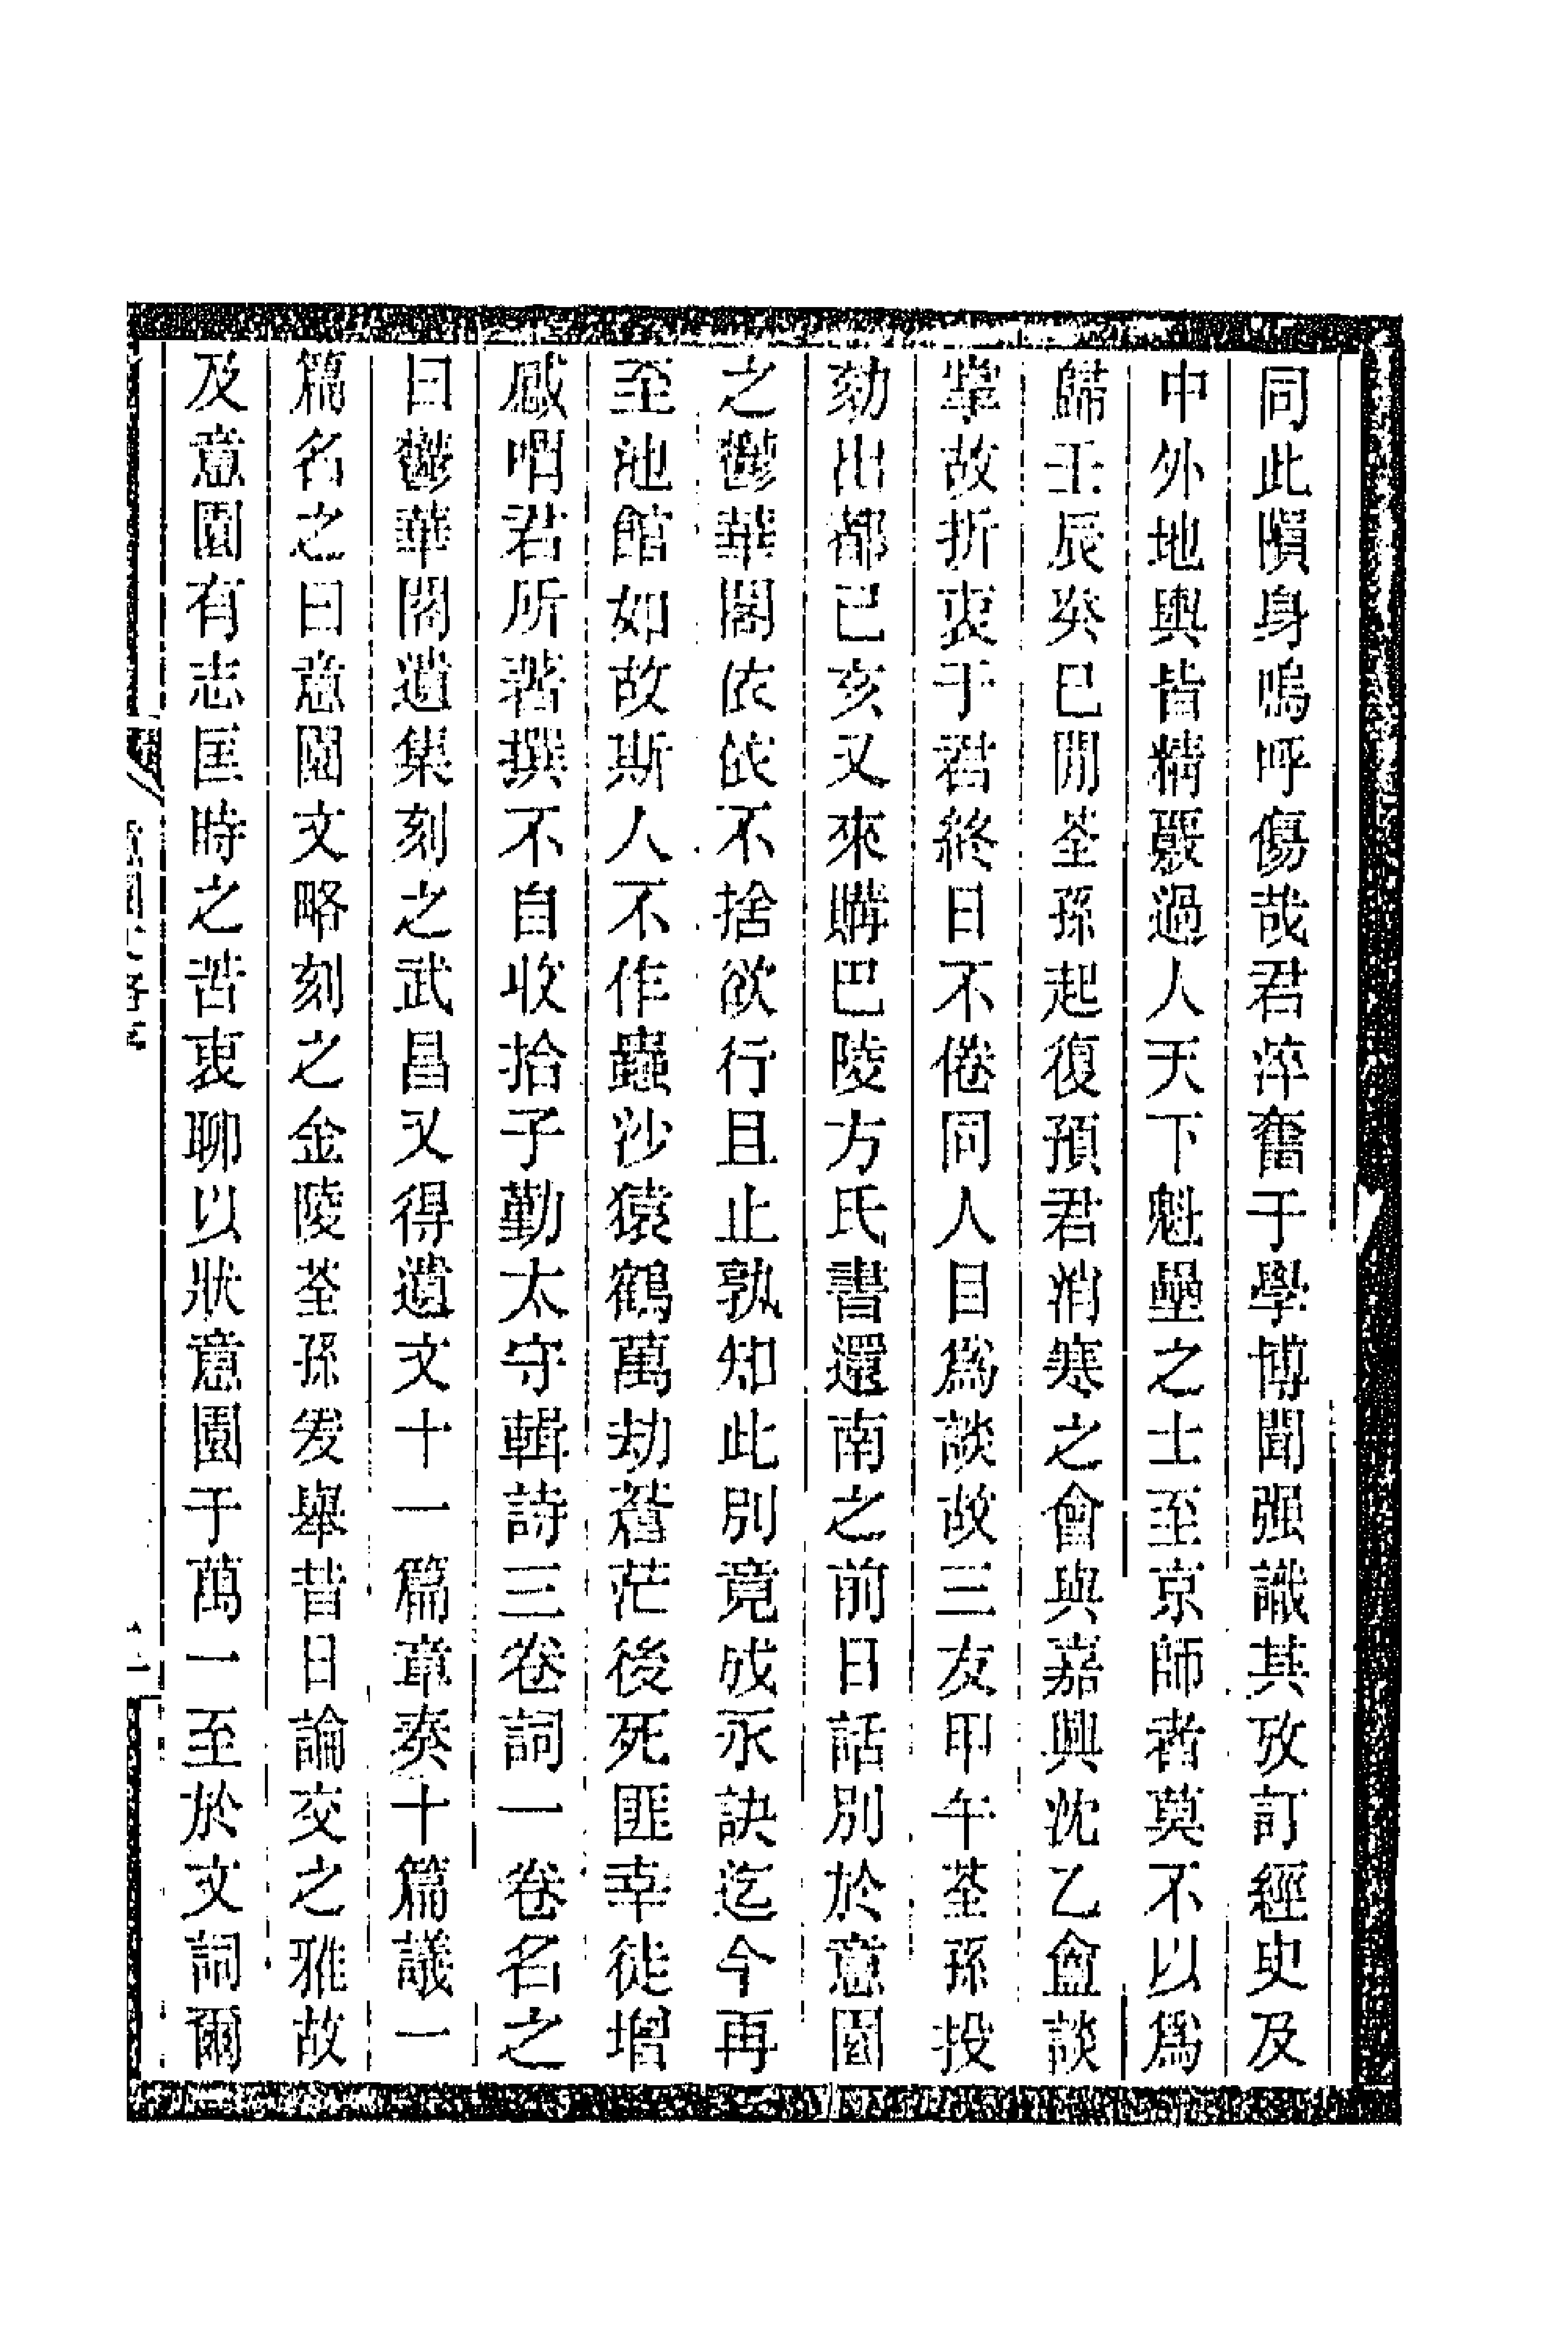 同此隕身嗚呼傷哉君淬奮于學博聞强識其攷訂經史及
中外地輿皆精覈過人天下魁壘之士至京師者莫不以爲
歸壬辰癸巳閒荃孫起復預君消寒之會與嘉興沈乙盦談
掌故折衷于君終日不倦同人目爲談故三友甲午荃孫投
劾出都己亥又來購巴陵方氏書還南之前日話別於意園
之鬱華閣依依不捨欲行且止孰知此別竟成永訣迄今再
至池館如故斯人不作蟲沙猿鶴萬劫蒼茫後死匪幸徙增
感喟君所著撰不自收拾子勤太守輯詩三卷詞一卷名之
曰鬱華閣遺集刻之武昌又得遺文十一篇章奏十篇議一
篇名之曰意園文略刻之金陵荃孫爰舉昔日論交之雅故
及意園有志匡時之苦衷聊以狀意園于萬一至於文詞爾